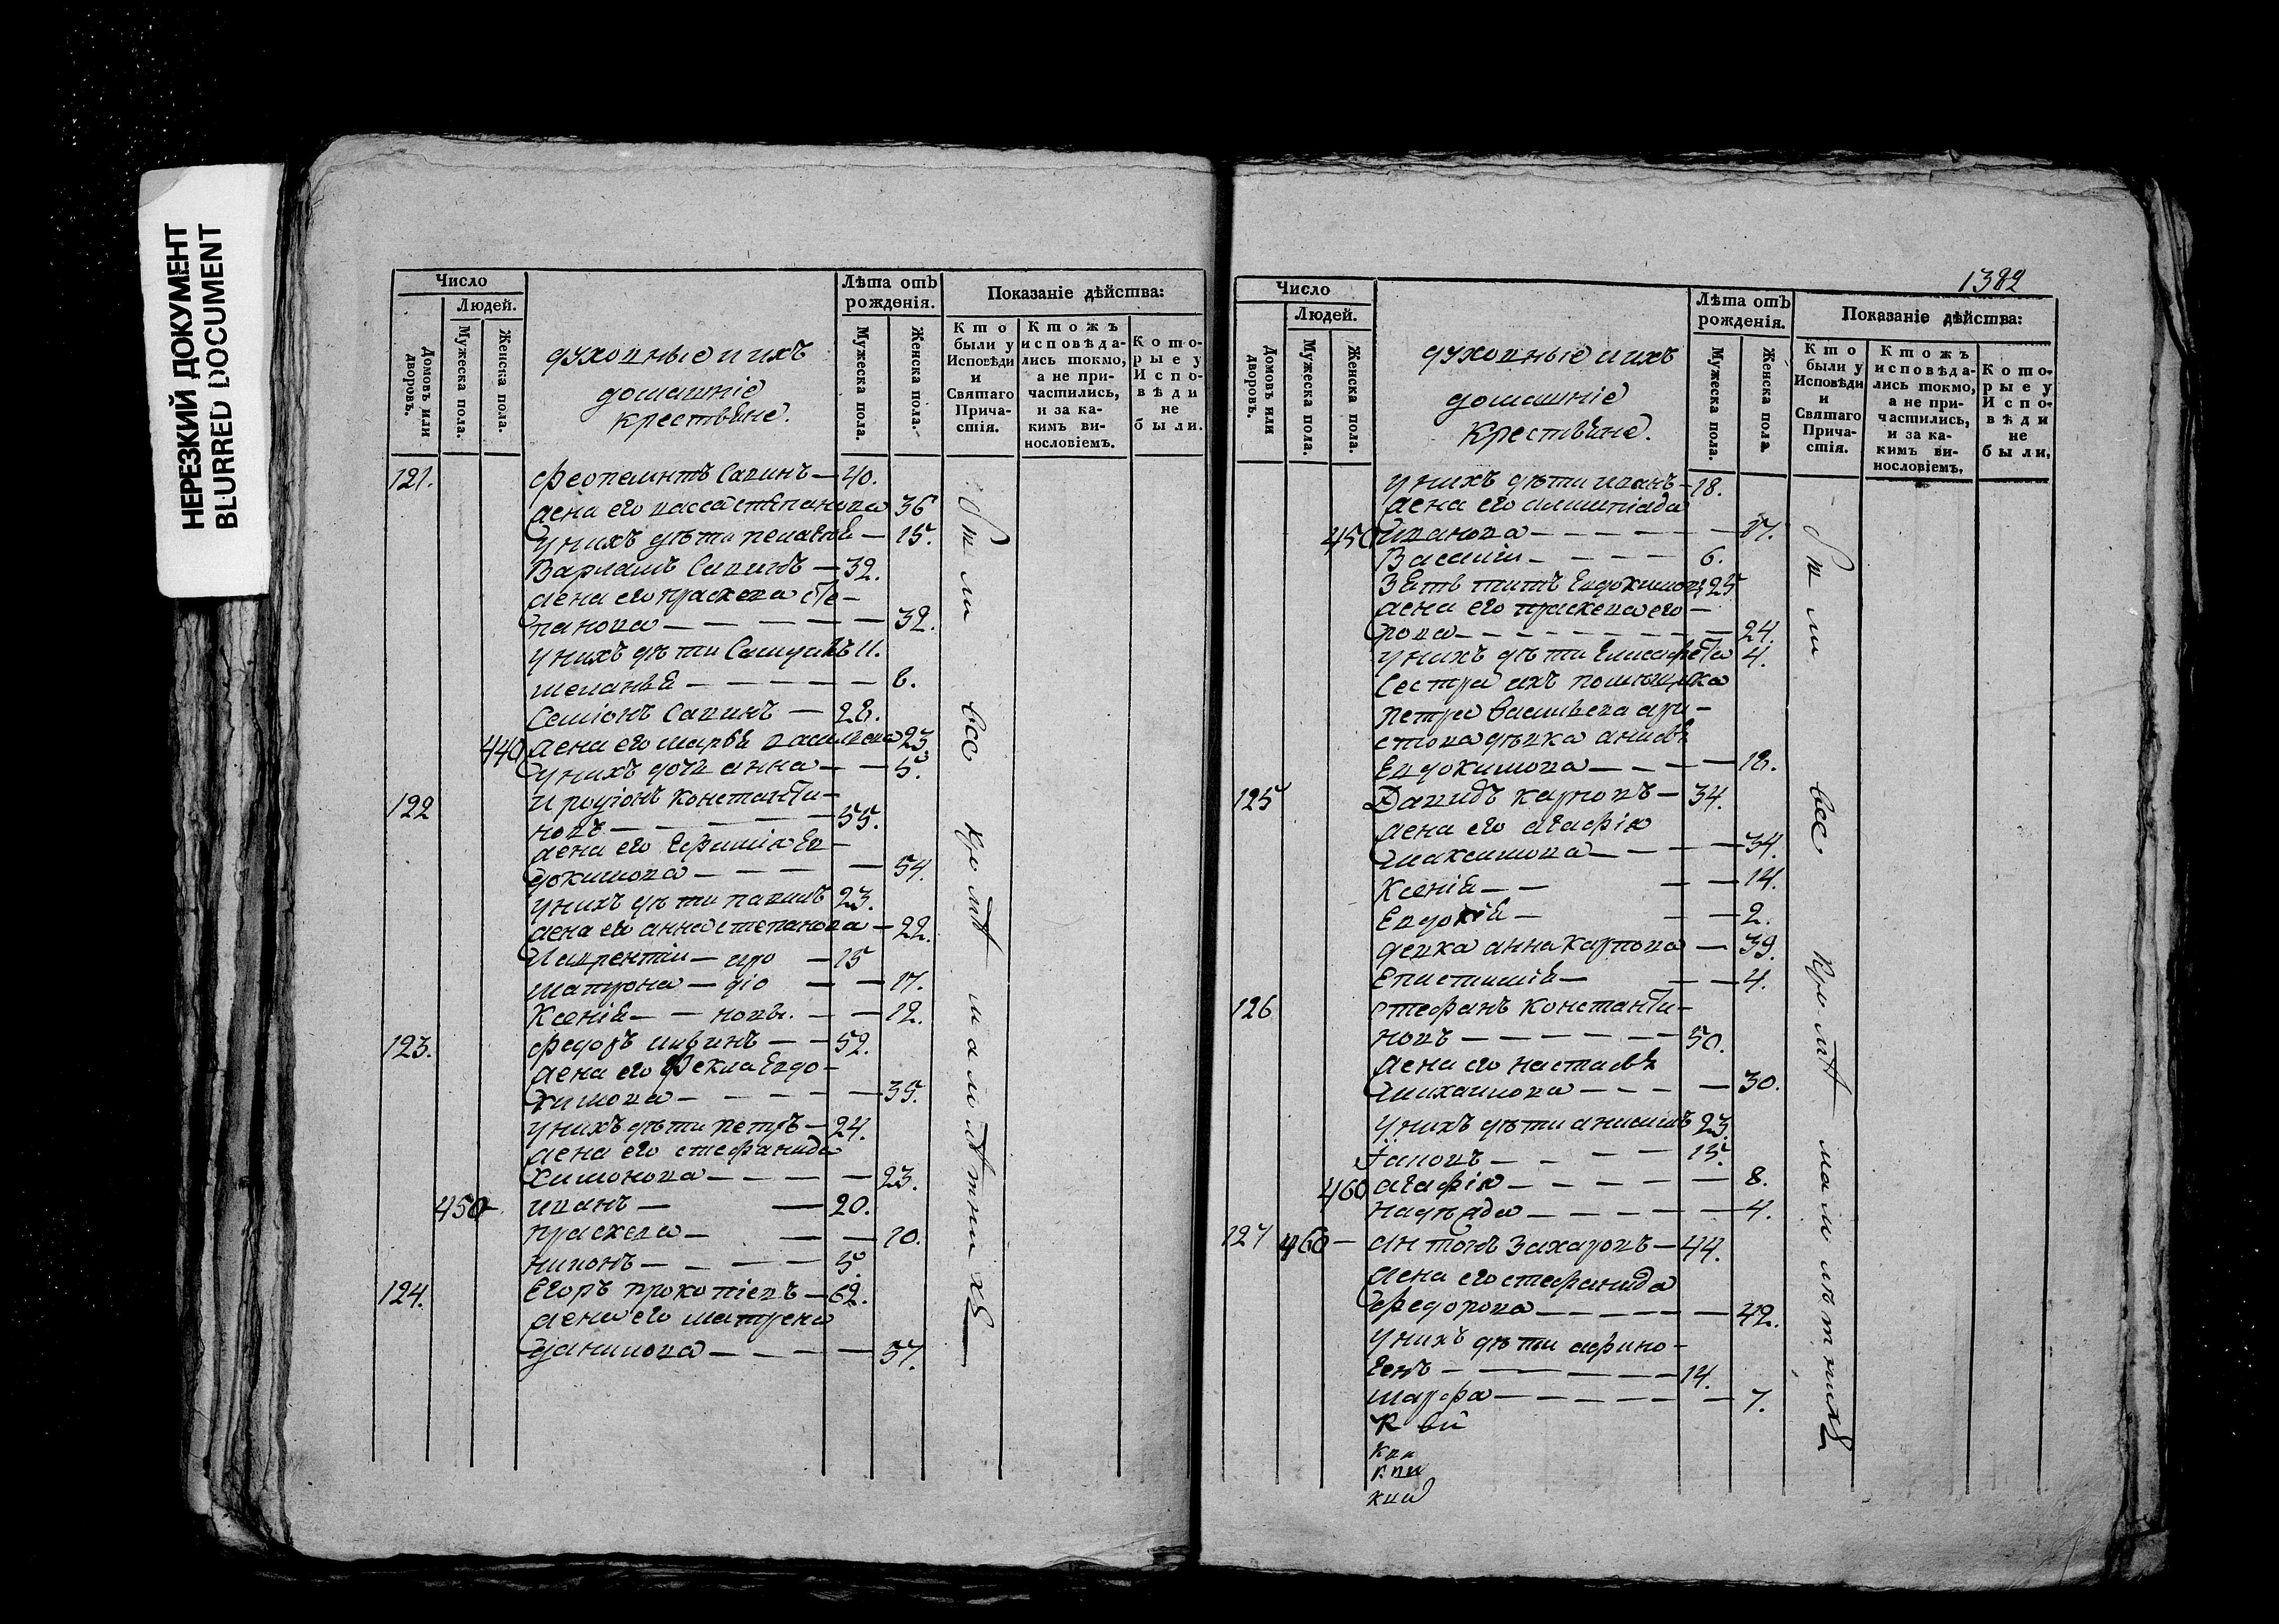 НЕРЕЗКИЙ ДОКУМЕНТ
BLURRED DOCUMENT
Число
Людей.
Домовъ или дворовъ.
Мужеска пола.
Женска пола.
духовные и ихъ
домашніе
крестьяне.
Лѣта отъ рожденія.
Мужеска пола.
Женска пола.
Показаніе дѣйства:
Кто были у Исповѣди и Святаго Прича-стія.
Ктожъ исповѣда-лись токмо, а не при-частились, и за ка-кимъ ви-нословіемъ.
Кото-рые у Испо-вѣди не были.
121. Феопемптъ Савинъ — 40.
жена его васса степанова 36
у нихъ дѣти пелагея — 15.
Варламъ Савинъ — 32.
жена его праскева сте-
панова — — — — — 32.
у нихъ дѣти Самуилъ 11.
меланья — — — — — 8.
Семіонъ Савинъ — 28.
440 жена его марья васильева 23.
у нихъ дочь анна — — 5.
122 Иродіонъ Константи-
новъ — — — — — 55.
жена его Ефимія Ев-
докимова — — — — 54.
у нихъ дѣти павилъ 23.
жена его анна степанова — 22.
Лаврентіи — иро — 15
матрона — діо — — 17.
Ксенія — — новы. — — 12.
123. федоръ — — 52.
жена его Фекла Евдо-
кимова — — — — — 35.
у нихъ дѣти петръ — 24.
жена его стефанида
— — — — 23.
450 — иванъ — — 20.
праскева — — — 10.
— — — — 5.
124. Егоръ прокопіевъ — 62.
жена его матрена
данилова — — — — 57.
были все кромѣ малолѣтнихъ
1382
Число
Людей.
Домовъ или дворовъ.
Мужеска пола.
Женска пола.
духовные и ихъ
домашніе
крестьяне.
Лѣта отъ рожденія.
Мужеска пола.
Женска пола
Показаніе дѣйства:
Кто были у Исповѣди и Святаго Прича-стія.
Ктожъ исповѣда-лись токмо, а не при-частились, и за ка-кимъ ви-нословіемъ.
Кото-рые у Испо-вѣди не были,
у нихъ дѣти иванъ — 18.
жена его олимпіада
450 иванова — — — — — 17.
Василіи — — — — 6.
Зять титъ Евдокимовъ 25
жена его праскева его-
рова — — — — — — — 24.
у нихъ дѣти Елисафета 4.
сестра ихъ помещика
петра васильева ари-
стова дѣвка
Евдокимова — — — — 18.
125 Давидъ карповъ — 34.
жена его агафія
максимова — — — — 34.
Ксенія — — — — 14.
Евдокія — — — 2.
девка анна карпова — 39.
Епистимія — — — 4.
126 стефанъ Константи-
новъ — — — — — — 50.
жена его настасья
михаилова — — — — 30.
у нихъ дѣти анисимъ 23.
— — — — 15.
460 агафія — — — — — — 8.
надѣжда — — — — — 4.
127 460 — антонъ Захаровъ — 44.
жена его стефанида
федорова — — — — — 42.
у нихъ дѣти афино-
генъ — — — — — 14.
марфа — — — — — 7.
были все кромѣ малолѣтнихъ